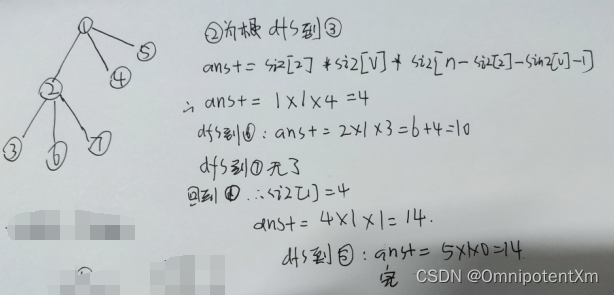 1
5
4
2
3
6
7
②为根 dfs到③
ans+= siz[2]*siz[v]*siz[n-siz[2]-siz[v]-1]
∴ ans+= 1×1×4=4
dfs到⑥: ans+= 2×1×3=6+4=10
dfs到⑦无了
回到④ ∴siz[1]=4
ans+= 4×1×1=14.
dfs到⑤: ans+= 5×1×0=14
完
CSDN @OmnipotentXm